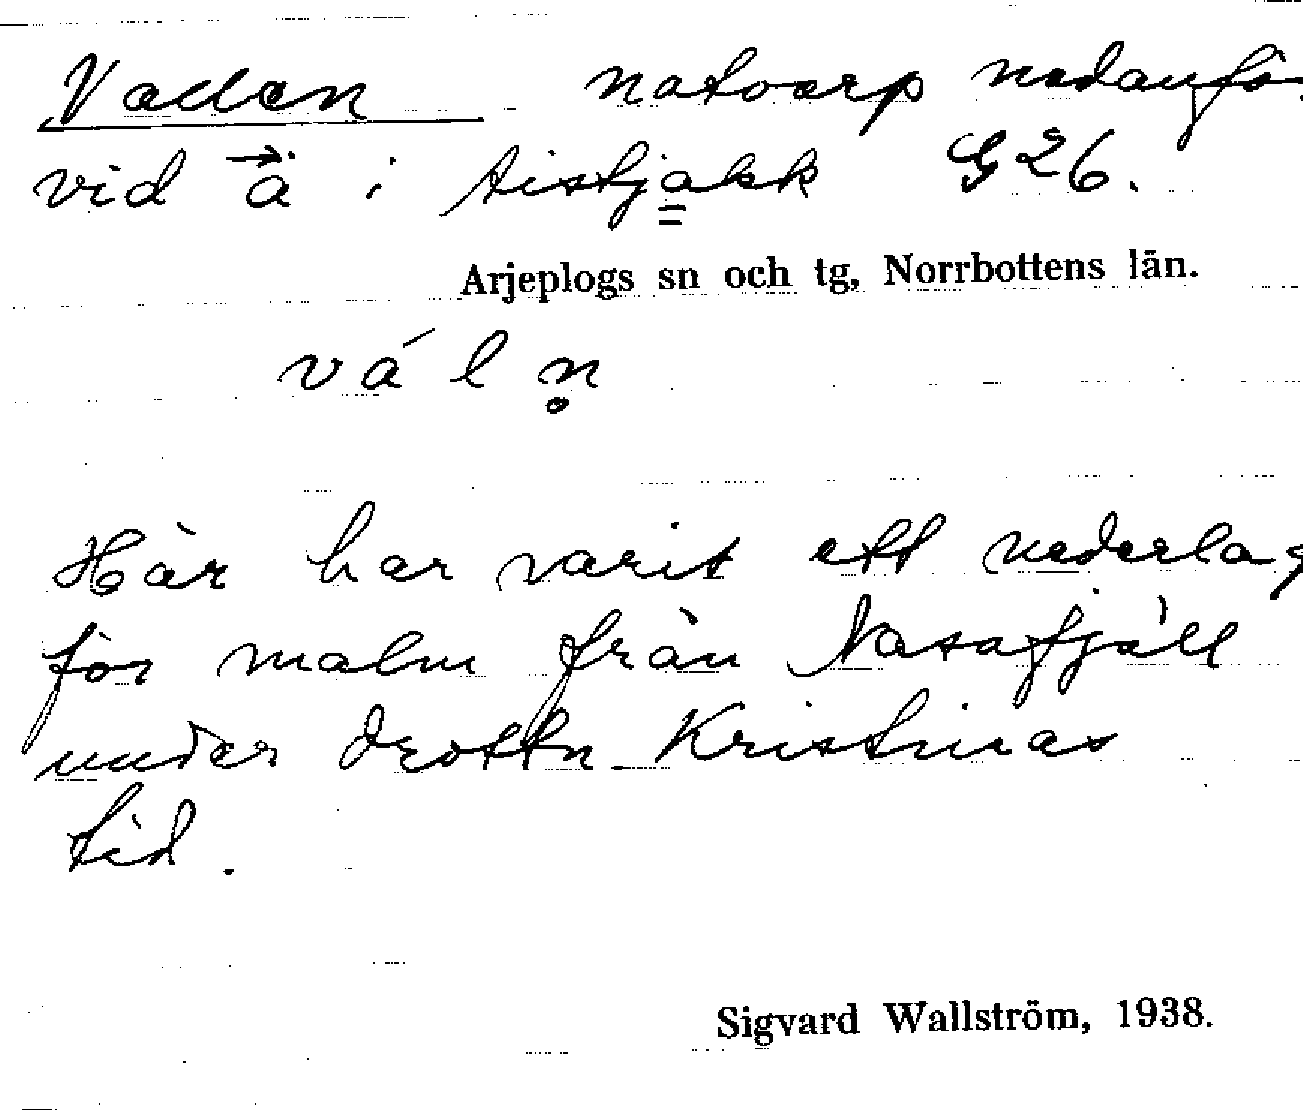 Vallen notvarp nedanfö
vid ä i Aistjakk G 26.
Arjeplogs sn och tg, Norrbottens län.
v á l n̥
Här har varit ett nederlag
för malm från Nasafjäll
under drottn Kristinas
tid.
Sigvard Wallström, 1938.